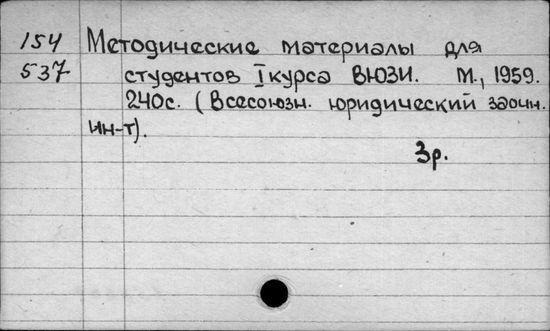 154 Методические материалы для
537 студентов I курса ВЮЗИ. М., 1959.
240с. (Всесоюзн. юридический заочн.
ин-т).
3р.